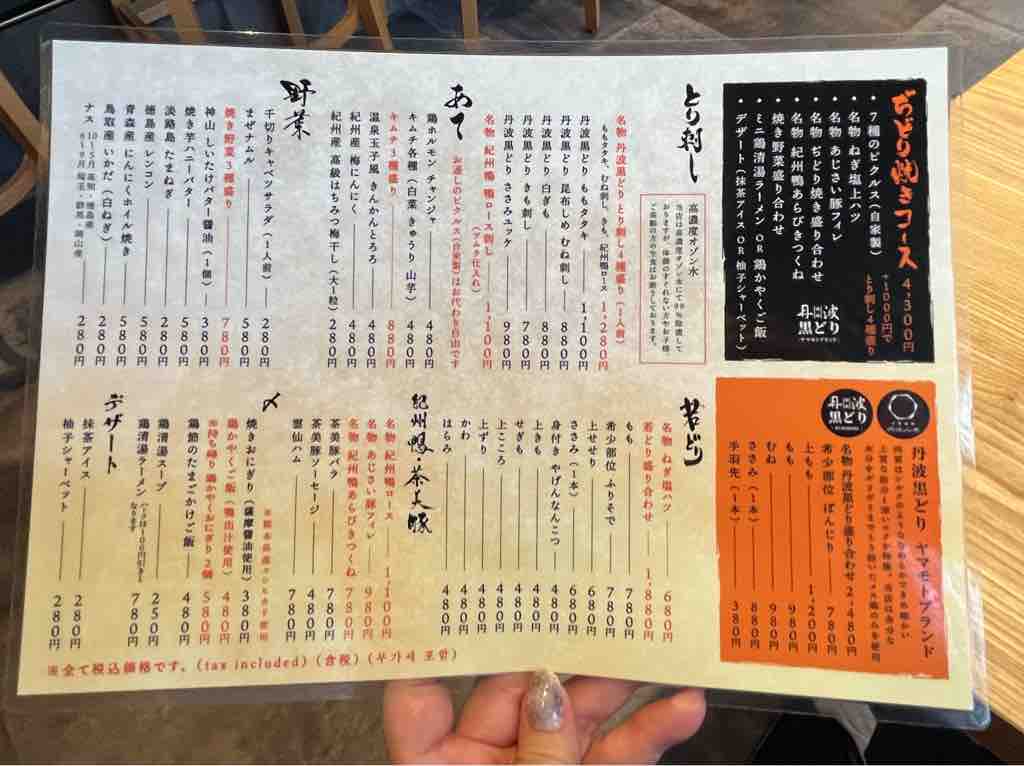 ぢどり焼きコース 4,300円
+1000円でとり刺し4種盛り
• 7種のピクルス(自家製)
• 名物 ねぎ塩上ハツ
• 名物 あじさい豚フィレ
• 名物 ぢどり焼き盛り合わせ
• 名物 紀州鴨あらびきつくね
• 焼き野菜盛り合わせ
• ミニ鶏清湯ラーメン OR 鶏かやくご飯
• デザート(抹茶アイス OR 柚子シャーベット)
丹波黒どり
とり刺し
高濃度オゾン水
名物 丹波黒どり とり刺し4種盛り(1人前) 1,280円
ももタタキ、むね刺し、きも、紀州鴨ロース
丹波黒どり ももタタキ 1,100円
丹波黒どり 昆布しめ むね刺し 880円
丹波黒どり 白ぎも 880円
丹波黒どり きも刺し 780円
丹波黒どり ささみユッケ 980円
名物 紀州鴨 鴨ロース刺し 1,100円
あて
お通しのピクルス(自家製)はお代わり自由です
鶏ホルモン チャンジャ 480円
キムチ各種(白菜 きゅうり 山芋) 480円
キムチ3種盛り 880円
温泉玉子風 きんかんとろろ 480円
紀州産 梅にんにく 380円
紀州産 高級はちみつ梅干し(大1粒) 380円
野菜
千切りキャベツサラダ(1人前) 280円
まぜナムル 580円
焼き野菜3種盛り 780円
神山 しいたけバター醤油(1個) 380円
焼き芋ハニーバター 580円
淡路島 たまねぎ 580円
徳島産 レンコン 580円
青森産 にんにくホイル焼き 580円
鳥取産 いかだ(白ねぎ) 280円
ナス 280円
丹波黒どり ヤマモトブランド
丹波黒どり
名物 丹波黒どり盛り合わせ 2,480円
希少部位 ぼんじり 780円
上もも 1,200円
もも 980円
むね 980円
ささみ(1本) 850円
手羽先(1本) 380円
若どり
名物 上ねぎ塩ハツ 680円
若どり盛り合わせ 1,880円
もも 780円
希少部位 ふりそで 780円
上せせり 680円
ささみ(1本) 680円
身付き やげんなんこつ 480円
上きも 480円
せぎも 480円
上こころ 480円
上ずり 480円
かわ 480円
はらみ 480円
紀州鴨・茶美豚
名物 紀州鴨ロース 1,100円
名物 あじさい豚フィレ 980円
名物 紀州鴨あらびきつくね 780円
茶美豚バラ 780円
茶美豚ソーセージ 480円
雲仙ハム 780円
〆
焼きおにぎり(薩摩醤油使用) 380円
鶏かやくご飯(鴨出汁使用) 480円
※持ち帰り鶏かやくおにぎり2個 580円
鶏節のたまごかけご飯 480円
鶏清湯スープ 250円
鶏清湯ラーメン 780円
ハーフは100円引きになります
デザート
抹茶アイス 280円
柚子シャーベット 280円
※全て税込価格です。(tax included)(含税)(부가세 포함)